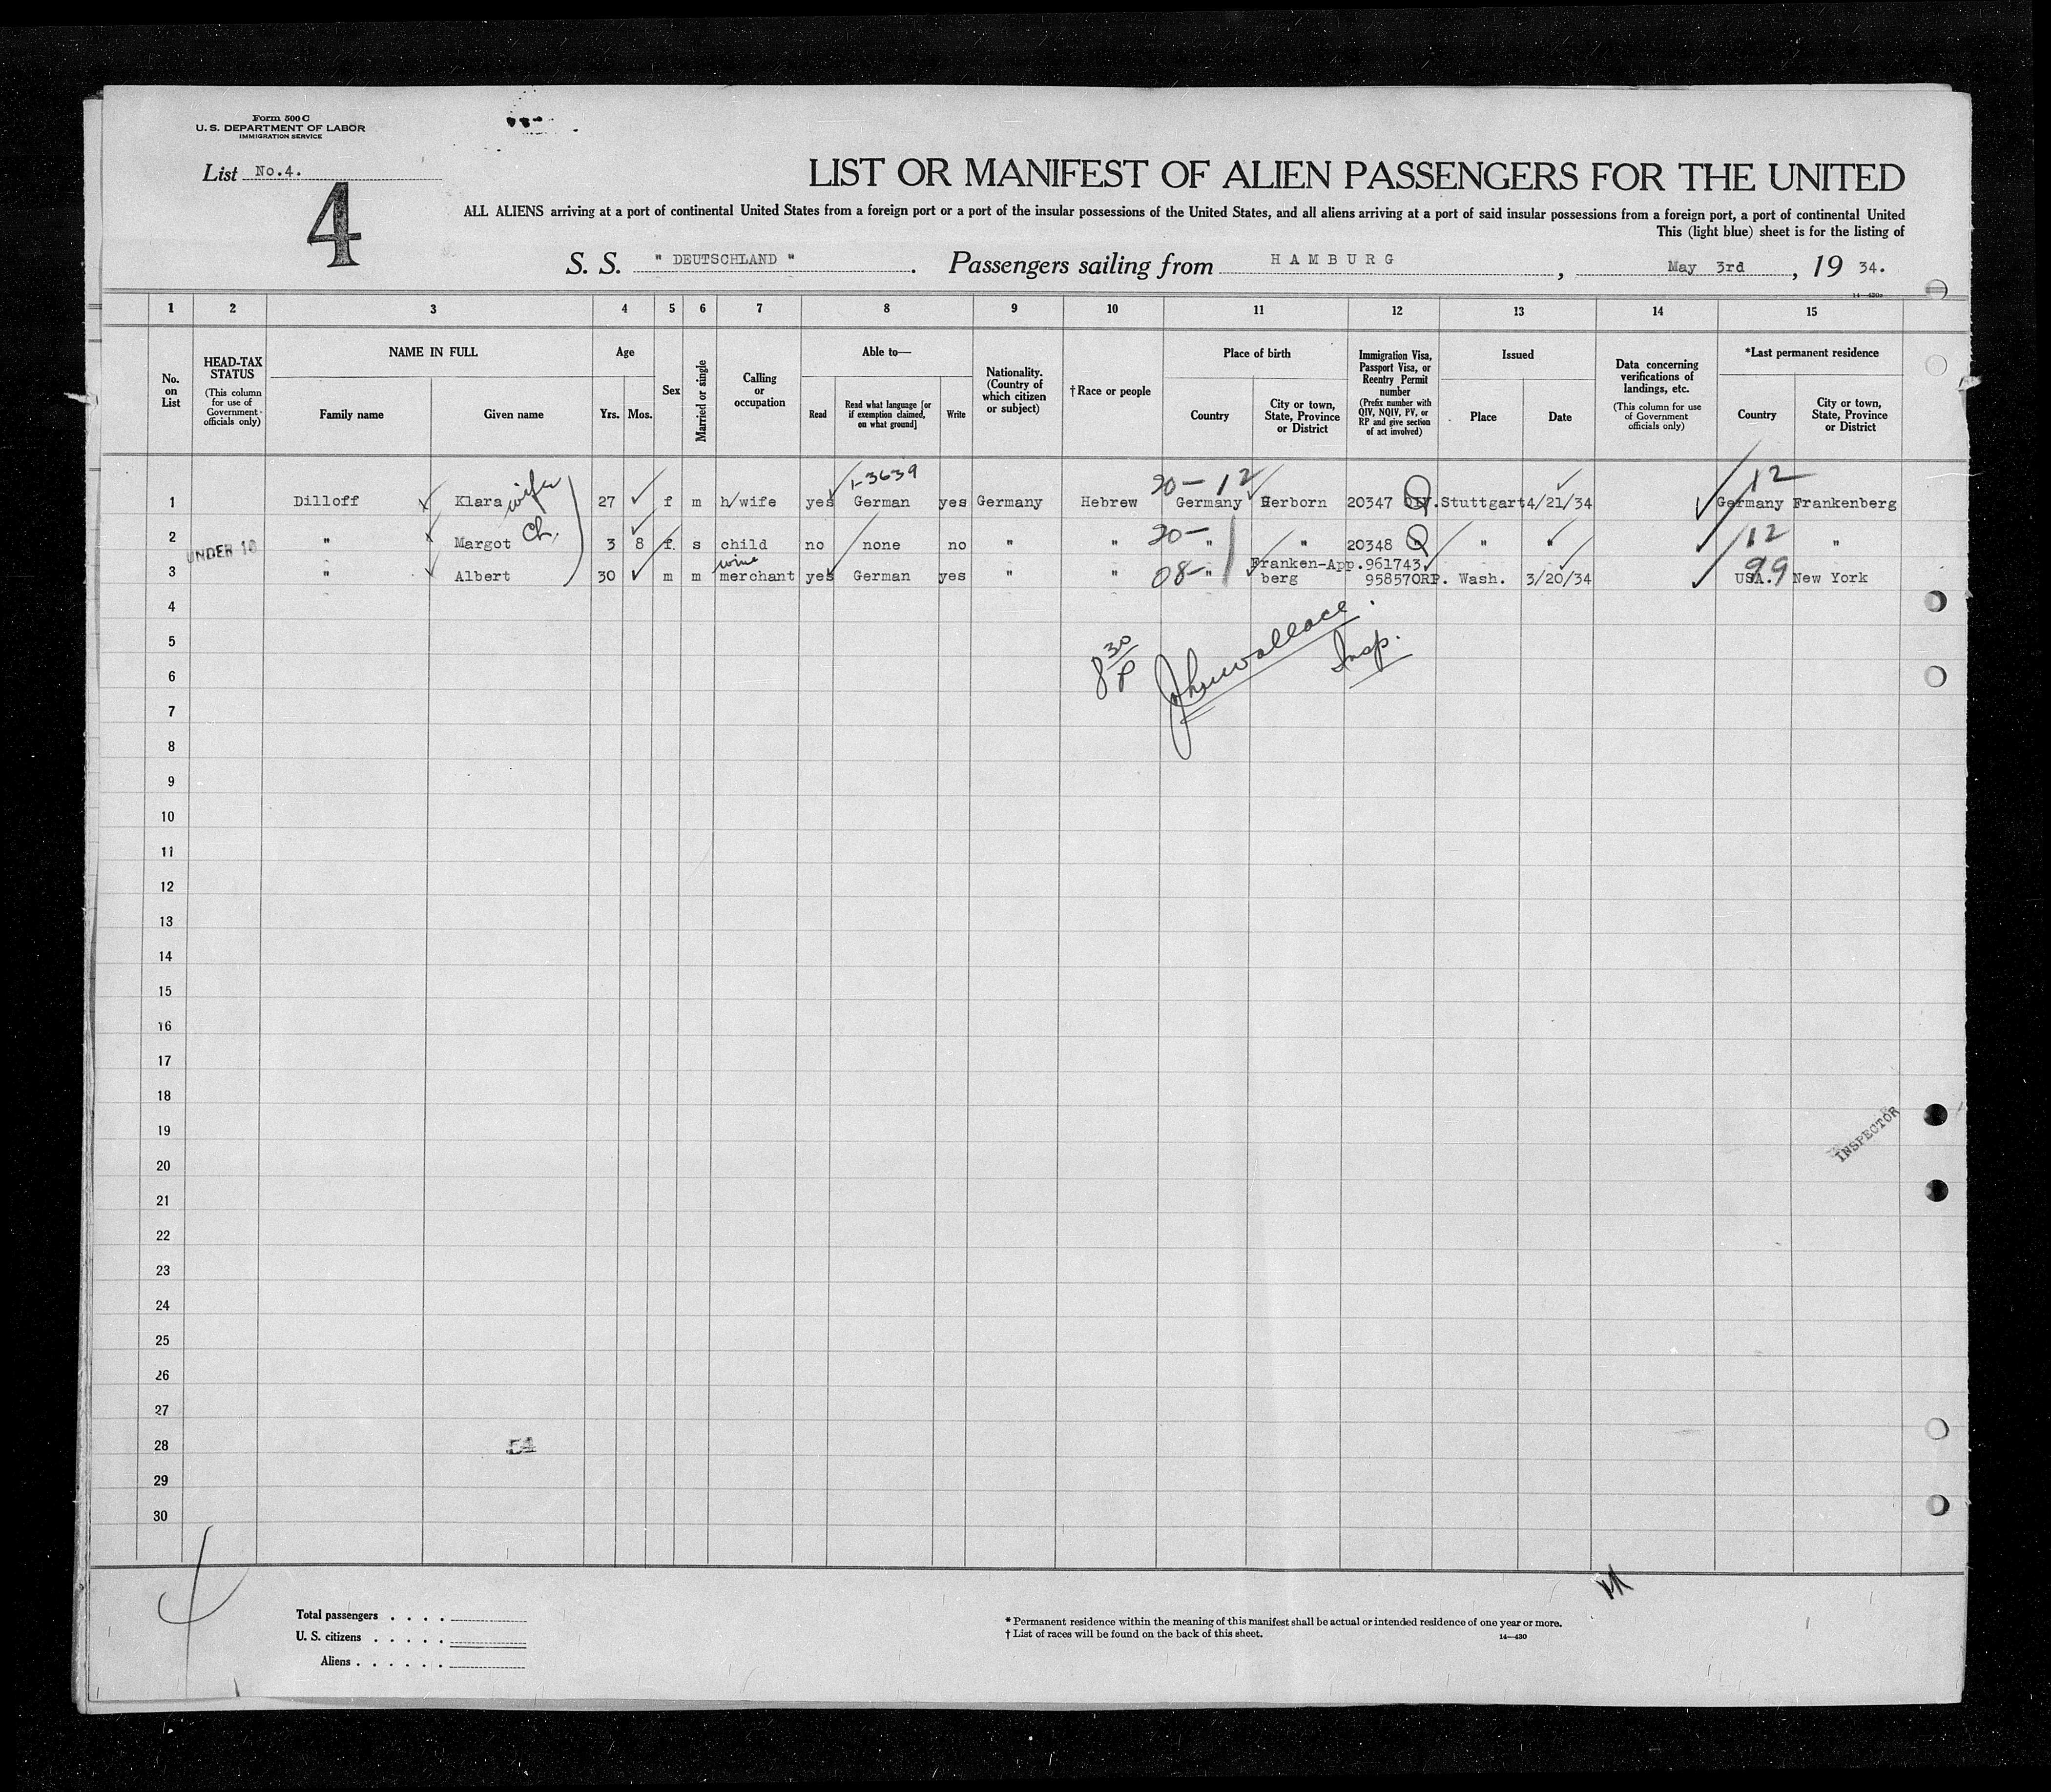 Form 500 C
U. S. DEPARTMENT OF LABOR
IMMIGRATION SERVICE
List No.4.
4
LIST OR MANIFEST OF ALIEN PASSENGERS FOR THE UNITED
ALL ALIENS arriving at a port of continental United States from a foreign port or a port of the insular possessions of the United States, and all aliens arriving at a port of said insular possessions from a foreign port, a port of continental United
This (light blue) sheet is for the listing of
S. S. " DEUTSCHLAND " . Passengers sailing from HAMBURG , May 3rd , 19 34.
1 2 3 4 5 6 7 8 9 10 11 12 13 14 15
No. on List
HEAD-TAX STATUS
(This column for use of Government officials only)
NAME IN FULL
Family name
Given name
Age
Yrs.
Mos.
Sex
Married or single
Calling or occupation
Able to—
Read
Read what language [or if exemption claimed, on what ground]
Write
Nationality. (Country of which citizen or subject)
† Race or people
Place of birth
Country
City or town, State, Province or District
Immigration Visa, Passport Visa, or Reentry Permit number
(Prefix number with QIV, NQIV, PV, or RP and give section of act involved)
Issued
Place
Date
Data concerning verifications of landings, etc.
(This column for use of Government officials only)
*Last permanent residence
Country
City or town, State, Province or District
1-3639
20- 12
12
1 Dilloff Klara wife 27 f m h/wife yes German yes Germany Hebrew Germany Herborn 20347 QIV. Stuttgart 4/21/34 Germany Frankenberg
2 UNDER 16 " Margot Ch. 3 8 f. s child no none no " " 20- " " 20348 Q " " 12 "
3 " Albert 30 m m wine merchant yes German yes " " 08- " Frankenberg App.961743 958570RP. Wash. 3/20/34 USA. 99 New York
4
5
6
7
8
9
10
11
12
13
14
15
16
17
18
19
20
21
22
23
24
25
26
27
28
29
30
8 30/P
John Wallace
Insp.
INSPECTOR
54
Total passengers . . . .
U. S. citizens . . . . .
Aliens . . . . . .
* Permanent residence within the meaning of this manifest shall be actual or intended residence of one year or more.
† List of races will be found on the back of this sheet.
14—430